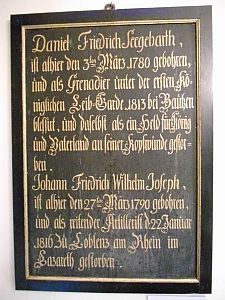 Daniel Friedrich Seegebarth,
ist alhier den 3ten März 1780 gebohren,
und als Grenadier unter der ersten Kö-
niglichen Leib-Garde 1813 bei Bautzen
blessirt, und daselbst als ein Held für König
und Vaterland an seiner Kopfwunde gestor-
ben.
Johann Friedrich Wilhelm Joseph,
ist alhier den 27ten März 1790 gebohren,
und als reitender Artillerist d. 22 Januar
1816 zu Coblenz am Rhein im
Lazareth gestorben.